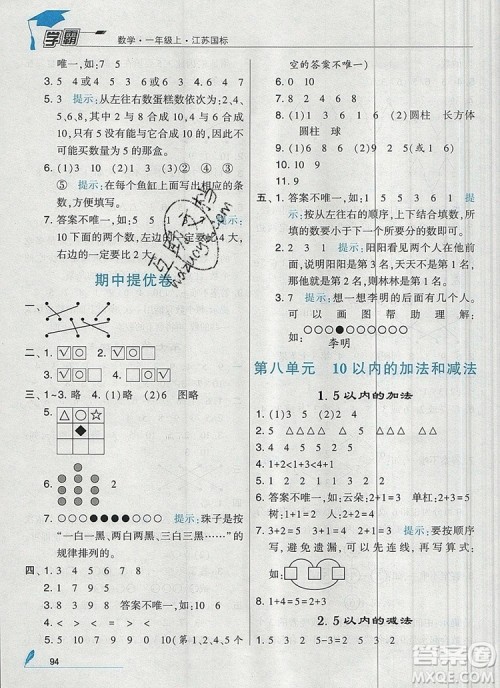 学霸
数学·一年级上·江苏国标
唯一,如:7 5
3. 5 4 6 3 5 2 6 7
4. 5 3 提示:从左往右数蛋糕数依次为:2、4、
5、6、8,其中 2 与 8 合成 10,4 与 6 合成
10,只有 5 不能与它合成 10 的那盒,因此不
可能买数量为 5 的那盒。
6. (1)3 (2)1 4 (3)③ ② ④ ①
⑤ 提示:在每个鱼缸上面写出相应的条
数,方便填写。
7. 答案不唯一,如:7 8 6 9 5 10 提示:
10 下面的两个数,右边的一定要比 4 大,
右边的一定要比 2 大。
期中提优卷
一、
二、1. √ ○ □ 2. √ □ ○ 3. □ √ ○
4. □ ○ √
三、1.~3. 略 4. (1)略 (2)6 图略
5. △ ○ ☆
6. 2
7. 提示:珠子是按
“一白一黑、两白两黑、三白三黑……”的
规律排列的。
四、1. < < > > < <
2. 3 8 3 答案不唯一,如:10 6
3. (1)2 (2)6 (3)4
4. 略
5. 5 10 7 9 9 10(第 1、2、4、5 个
空的答案不唯一)
6. 0 10
7. > < > < = >
8. (1)8 4 2 (2)6 (3)圆柱 长方体
圆柱 球
9. 10 7 4 3
10. (1)3 (2)4
11. 9
五、答案不唯一,如:1 0 2 2 1 3 1 4
2 3 提示:按从左往右的顺序,上下填,所
填的数要小于下一个所要分的数即可。
六、第 2 名 提示:阳阳是看见前面有选手的,
说明阳阳是第 2 名,而林林不是第 2 名,
那他就是第 1 名,因此阳阳是第 2 名。
七、10 提示:想一想李明的前后有几人。
可以画图帮助理解:
李明
第八单元 10 以内的加法和减法
1. 5 以内的加法
1. (1)5 (2)4 1 5
2. 5 5 △ △ △ △ △ △ △ △ △
3. 4 5 5 5 2 4
4. 1+2=3 1+4=5
5. > < < > = <
6. 答案不唯一,如:云朵:2+1=3 单杠:2+3=5
树:1+1=2 花:1+4=5
7. 3+2=5 1+3=4 提示:要按顺序
写,避免遗漏,可以先连线,再写算式。
2. 5 以内的减法
1. 5-3=2 4-1=3
94